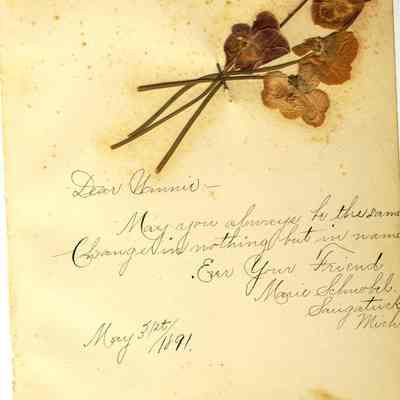 Dear Winnie –
May you always be the same
Change in nothing but in name
Ever Your Friend
Marie Schnobel.
Saugatuck
Mich
May 31st/1891.